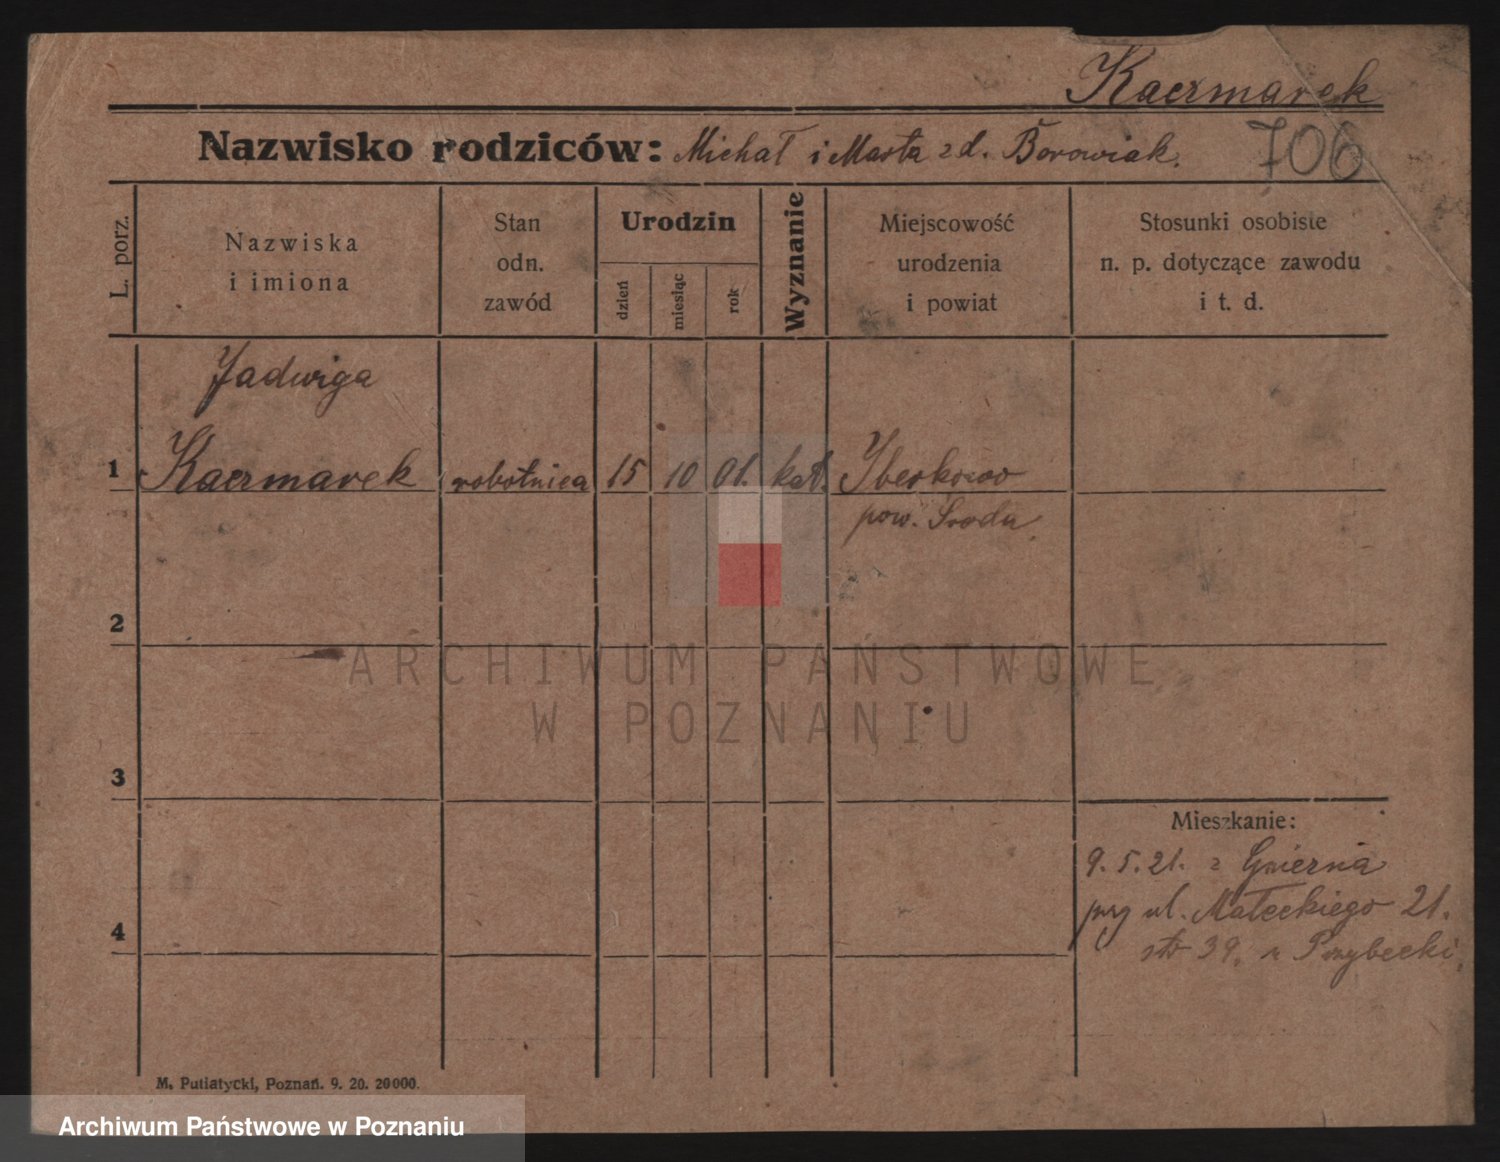 Kaczmarek
Nazwisko rodziców: Michał i Marta zd. Borowiak.
706
L. porz.
Nazwiska
i imiona
Stan
odn.
zawód
Urodzin
dzień
miesiąc
rok
Wyznanie
Miejscowość
urodzenia
i powiat
Stosunki osobiste
n. p. dotyczące zawodu
i t. d.
Jadwiga
1 Kaczmarek robotnica 15 10 01. kat.
pow. Środa
2
ARCHIWUM PAŃSTWOWE
W POZNANIU
3
Mieszkanie:
9.5.21. z
ul. Małeckiego 21.
str 39. Przybecki
4
M. Putiatycki, Poznań. 9. 20. 20000.
Archiwum Państwowe w Poznaniu